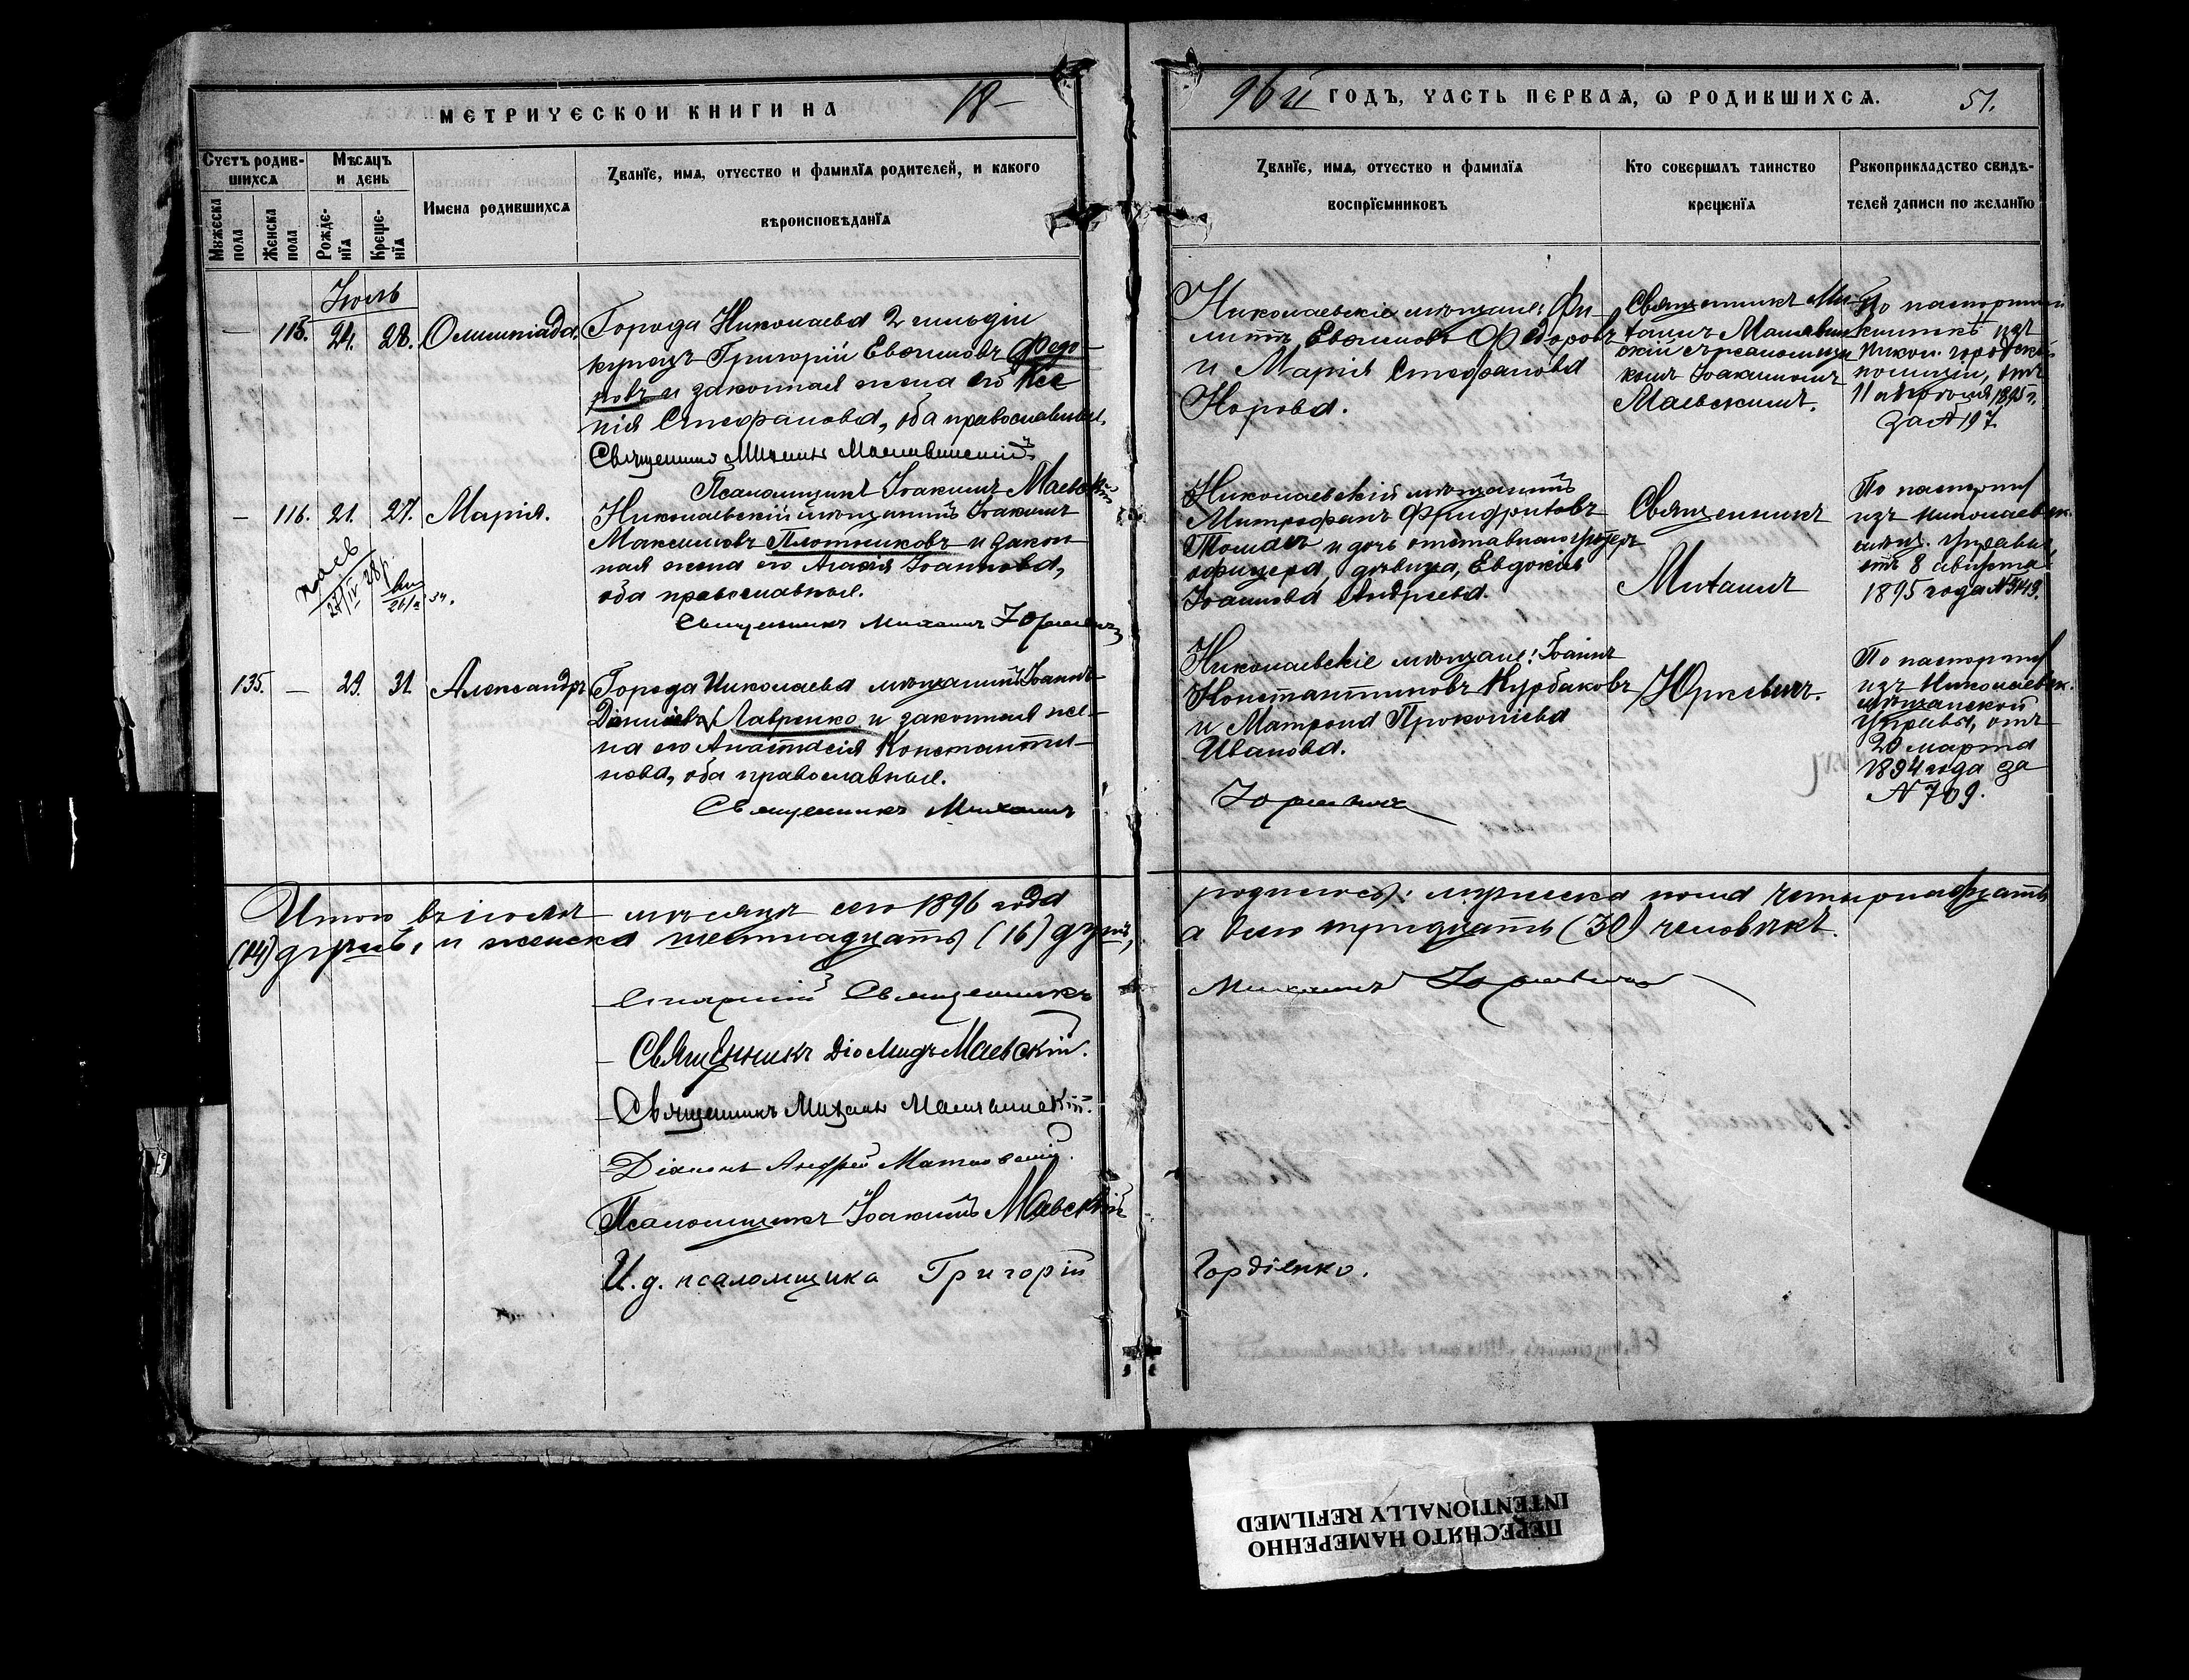 МЕТРИЧЕСКОЙ КНИГИ НА 18
96й ГОДЪ, ЧАСТЬ ПЕРВАЯ, Ѡ РОДИВШИХСЯ.
51.
Счетъ родив-
шихся
Мужеска
пола
Женска
пола
Мѣсяцъ
и день
Рожде-
нія
Креще-
нія
Имена родившихся
Званіе, имя, отчество и фамилія родителей, и какого
вѣроисповѣданія
Званіе, имя, отчество и фамилія
воспріемниковъ
Кто совершалъ таинство
крещенія
Рукоприкладство свидѣ-
телей записи по желанію
Іюль
— 115. 21. 28. Олимпіада.
Города Николаева 2 гильдіи
купецъ Григорій Евѳимовъ Федо-
ровъ и законная жена его Ксе-
нія Стефанова, оба православные.
Священникъ Михаилъ
Псаломщикъ Іоакимъ Маевскій
Николаевскіе мѣщане: Фи-
липпъ Евѳимовъ Федоровъ
и Марія Стефанова
Норова.
Священникъ Ми-
хаилъ
съ псаломщи-
комъ Іоакимомъ
Маевскимъ.
По паспортной
книжкѣ изъ
Никол. городской
полиціи, отъ
1895 г.
за № 197
— 116. 21. 27. Марія.
Николаевскій мѣщанинъ Іоакимъ
Максимовъ Плотниковъ и закон-
ная жена его Агаѳія Іоаннова,
оба православные.
Священникъ Михаилъ Юркевичъ
Николаевскій мѣщанинъ
Митрофанъ
и дочь отставного унтеръ
офицера, дѣвица, Евдокія
Іоаннова Андреева.
Священникъ
Михаилъ
По паспорту
изъ Николаевск.
мѣщ. управы,
отъ 8 августа
1895 года № 3449.
135. — 29. 31. Александръ
Города Николаева мѣщанинъ Іоаннъ
Даніиловъ Лавренко и законная же-
на его Анастасія Константи-
нова, оба православные.
Священникъ Михаилъ
Юркевичъ
Николаевскіе мѣщане: Іоаннъ
Константиновъ Курбаковъ
и Матрона Прокопіева
Иванова.
Юркевичъ.
По паспорту
изъ Николаевск.
мѣщанской
управы, отъ
20 марта
1894 года за
№ 709.
Итого въ іюлѣ мѣсяцѣ сего 1896 года родилось: мужеска пола четырнадцать
(14) душъ, и женска шестнадцать (16) душъ, а всего тридцать (30) человѣкъ.
Старшій Священникъ Михаилъ Юркевичъ
Священникъ Діомидъ Маевскій.
Священникъ Михаилъ
Діаконъ Андрей
Псаломщикъ Іоакимъ Маевскій
И. д. псаломщика Григорій Гордіенко.
ПЕРЕСНЯТО НАМЕРЕННО
INTENTIONALLY REFILMED